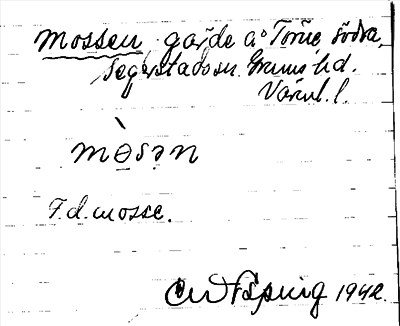 Mossen, gärde å Torne, södra,
Segerstads sn. Grums hd.
Värml. l.
mòsən
F.d. mosse.
1942.